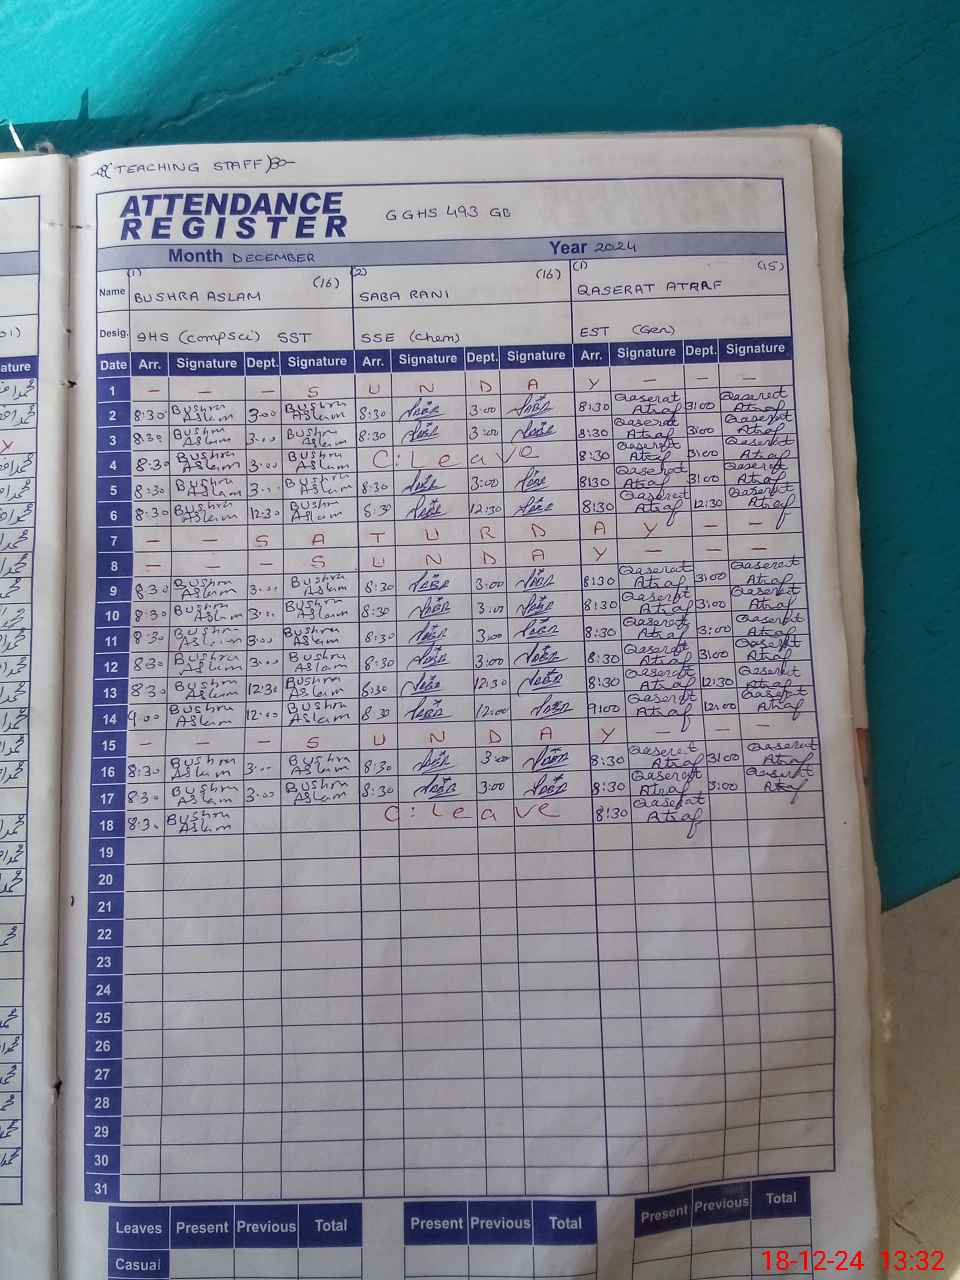 TEACHING STAFF
ATTENDANCE
REGISTER
GGHS 493 GB
Month DECEMBER Year 2024
Name (1) BUSHRA ASLAM (16) (2) SABA RANI (16) (1) QASERAT ATRAF (15)
Desig. (Comp Sci) SST SSE (Chem) EST (Gen)
Date Arr. Signature Dept. Signature Arr. Signature Dept. Signature Arr. Signature Dept. Signature
1 — — — S U N D A Y — — —
2 8:30 Bushra Aslam 3:00 Bushra Aslam 8:30 3:00 8:30 Qaserat Atraf 3:00 Qaserat Atraf
3 8:30 Bushra Aslam 3:00 Bushra Aslam 8:30 3:00 8:30 Qaserat Atraf 3:00 Qaserat Atraf
4 8:30 Bushra Aslam 3:00 Bushra Aslam C. Leave 8:30 Qaserat Atraf 3:00 Qaserat Atraf
5 8:30 Bushra Aslam 3:00 Bushra Aslam 8:30 3:00 8:30 Qaserat Atraf 3:00 Qaserat Atraf
6 8:30 Bushra Aslam 12:30 Bushra Aslam 8:30 12:30 8:30 Qaserat Atraf 12:30 Qaserat Atraf
7 — — S A T U R D A Y — —
8 — — — S U N D A Y — — —
9 8:30 Bushra Aslam 3:00 Bushra Aslam 8:30 3:00 8:30 Qaserat Atraf 3:00 Qaserat Atraf
10 8:30 Bushra Aslam 3:00 Bushra Aslam 8:30 3:00 8:30 Qaserat Atraf 3:00 Qaserat Atraf
11 8:30 Bushra Aslam 3:00 Bushra Aslam 8:30 3:00 8:30 Qaserat Atraf 3:00 Qaserat Atraf
12 8:30 Bushra Aslam 3:00 Bushra Aslam 8:30 3:00 8:30 Qaserat Atraf 3:00 Qaserat Atraf
13 8:30 Bushra Aslam 12:30 Bushra Aslam 8:30 12:30 8:30 Qaserat Atraf 12:30 Qaserat Atraf
14 9:00 Bushra Aslam 12:00 Bushra Aslam 8:30 12:00 9:00 Qaserat Atraf 12:00 Qaserat Atraf
15 — — — S U N D A Y — — —
16 8:30 Bushra Aslam 3:00 Bushra Aslam 8:30 3:00 8:30 Qaserat Atraf 3:00 Qaserat Atraf
17 8:30 Bushra Aslam 3:00 Bushra Aslam 8:30 3:00 8:30 Qaserat Atraf 3:00 Qaserat Atraf
18 8:30 Bushra Aslam C. Leave 8:30 Qaserat Atraf
19
20
21
22
23
24
25
26
27
28
29
30
31
Leaves Present Previous Total Present Previous Total Present Previous Total
Casual
18-12-24 13:32